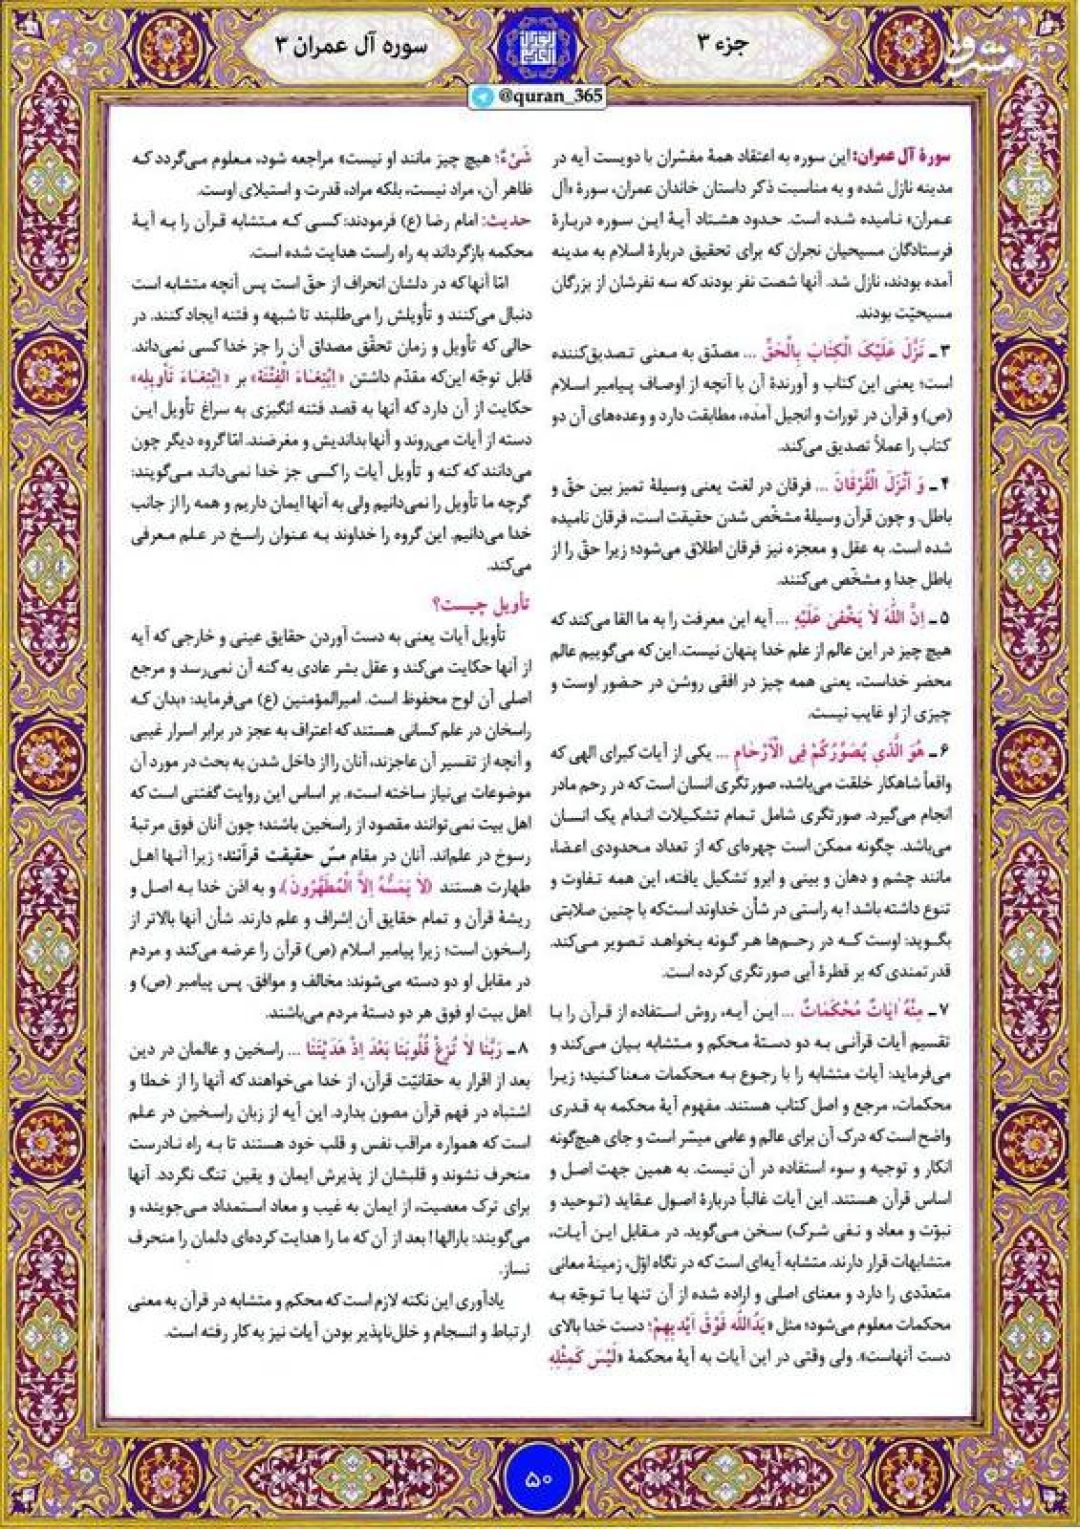 جزء ۳
سوره آل عمران ۳
@quran_365
مشرق
سورهٔ آل عمران: این سوره به اعتقاد همهٔ مفسّران با دویست آیه در
مدینه نازل شده و به مناسبت ذکر داستان خاندان عمران، سورهٔ «آل
عمران» نامیده شده است. حدود هشتاد آیهٔ این سوره دربارهٔ
فرستادگان مسیحیان نجران که برای تحقیق دربارهٔ اسلام به مدینه
آمده بودند، نازل شد. آنها شصت نفر بودند که سه نفرشان از بزرگان
مسیحیّت بودند.
۳ـ نَزَّلَ عَلَیْکَ الْکِتَابَ بِالْحَقِّ ... مصدّق به معنی تصدیق‌کننده
است؛ یعنی این کتاب و آورندهٔ آن با آنچه از اوصاف پیامبر اسلام
(ص) و قرآن در تورات و انجیل آمده، مطابقت دارد و وعده‌های آن دو
کتاب را عملاً تصدیق می‌کند.
۴ـ وَ أَنْزَلَ الْفُرْقَانَ ... فرقان در لغت یعنی وسیلهٔ تمیز بین حقّ و
باطل. و چون قرآن وسیلهٔ مشخّص شدن حقیقت است، فرقان نامیده
شده است. به عقل و معجزه نیز فرقان اطلاق می‌شود؛ زیرا حقّ را از
باطل جدا و مشخّص می‌کنند.
۵ـ اِنَّ اللّٰهَ لاَ یَخْفیٰ عَلَیْهِ ... آیه این معرفت را به ما القا می‌کند که
هیچ چیز در این عالم از علم خدا پنهان نیست. این‌که می‌گوییم عالم
محضر خداست، یعنی همه چیز در افقی روشن در حضور اوست و
چیزی از او غایب نیست.
۶ـ هُوَ الَّذِی یُصَوِّرُکُمْ فِی الْاَرْحَامِ ... یکی از آیات کبرای الهی که
واقعاً شاهکار خلقت می‌باشد، صورتگری انسان است که در رحم مادر
انجام می‌گیرد. صورتگری شامل تمام تشکیلات اندام یک انسان
می‌باشد. چگونه ممکن است چهره‌ای که از تعداد محدودی اعضا،
مانند چشم و دهان و بینی و ابرو تشکیل یافته، این همه تفاوت و
تنوع داشته باشد! به راستی در شأن خداوند است‌که با چنین صلابتی
بگوید: اوست که در رحم‌ها هر گونه بخواهد تصویر می‌کند.
قدرتمندی که بر قطرهٔ آبی صورتگری کرده است.
۷ـ مِنْهُ اٰیَاتٌ مُحْکَمَاتٌ ... این آیه، روش استفاده از قرآن را با
تقسیم آیات قرآنی به دو دستهٔ محکم و متشابه بیان می‌کند و
می‌فرماید: آیات متشابه را با رجوع به محکمات معنا کنید؛ زیرا
محکمات، مرجع و اصل کتاب هستند. مفهوم آیهٔ محکمه به قدری
واضح است که درک آن برای عالم و عامی میسّر است و جای هیچ‌گونه
انکار و توجیه و سوء استفاده در آن نیست. به همین جهت اصل و
اساس قرآن هستند. این آیات غالباً دربارهٔ اصول عقاید (توحید و
نبوّت و معاد و نفی شرک) سخن می‌گوید. در مقابل این آیات،
متشابهات قرار دارند. متشابه آیه‌ای است که در نگاه اوّل، زمینهٔ معانی
متعدّدی را دارد و معنای اصلی و اراده شده از آن تنها با توجّه به
محکمات معلوم می‌شود؛ مثل «یَدُاللّٰهِ فَوْقَ اَیْدِیهِمْ؛ دست خدا بالای
دست آنهاست». ولی وقتی در این آیات به آیهٔ محکمهٔ «لَیْسَ کَمِثْلِهِ
شَیْءٌ؛ هیچ چیز مانند او نیست» مراجعه شود، معلوم می‌گردد که
ظاهر آن، مراد نیست، بلکه مراد، قدرت و استیلای اوست.
حدیث: امام رضا (ع) فرمودند: کسی که متشابه قرآن را به آیهٔ
محکمه بازگرداند به راه راست هدایت شده است.
امّا آنها که در دلشان انحراف از حقّ است پس آنچه متشابه است
دنبال می‌کنند و تأویلش را می‌طلبند تا شبهه و فتنه ایجاد کنند. در
حالی که تأویل و زمان تحقّق مصداق آن را جز خدا کسی نمی‌داند.
قابل توجّه این‌که مقدّم داشتن «اِبْتِغَاءَ الْفِتْنَةِ» بر «اِبْتِغَاءَ تَأْوِیلِهِ»
حکایت از آن دارد که آنها به قصد فتنه انگیزی به سراغ تأویل این
دسته از آیات می‌روند و آنها بداندیش و مغرضند. امّا گروه دیگر چون
می‌دانند که کنه و تأویل آیات را کسی جز خدا نمی‌داند می‌گویند:
گرچه ما تأویل را نمی‌دانیم ولی به آنها ایمان داریم و همه را از جانب
خدا می‌دانیم. این گروه را خداوند به عنوان راسخ در علم معرفی
می‌کند.
تأویل چیست؟
تأویل آیات یعنی به دست آوردن حقایق عینی و خارجی که آیه
از آنها حکایت می‌کند و عقل بشر عادی به کنه آن نمی‌رسد و مرجع
اصلی آن لوح محفوظ است. امیرالمؤمنین (ع) می‌فرماید: «بدان که
راسخان در علم کسانی هستند که اعتراف به عجز در برابر اسرار غیبی
و آنچه از تفسیر آن عاجزند، آنان را از داخل شدن به بحث در مورد آن
موضوعات بی‌نیاز ساخته است». بر اساس این روایت گفتنی است که
اهل بیت نمی‌توانند مقصود از راسخین باشند؛ چون آنان فوق مرتبهٔ
رسوخ در علم‌اند. آنان در مقام مسّ حقیقت قرآنند؛ زیرا آنها اهل
طهارت هستند (لاَ یَمَسُّهُ اِلاَّ الْمُطَهَّرُونَ)، و به اذن خدا به اصل و
ریشهٔ قرآن و تمام حقایق آن اِشراف و علم دارند. شأن آنها بالاتر از
راسخون است؛ زیرا پیامبر اسلام (ص) قرآن را عرضه می‌کند و مردم
در مقابل او دو دسته می‌شوند: مخالف و موافق. پس پیامبر (ص) و
اهل بیت او فوق هر دو دستهٔ مردم می‌باشند.
۸ـ رَبَّنَا لاَ تُزِغْ قُلُوبَنَا بَعْدَ اِذْ هَدَیْتَنَا ... راسخین و عالمان در دین
بعد از اقرار به حقانیّت قرآن، از خدا می‌خواهند که آنها را از خطا و
اشتباه در فهم قرآن مصون بدارد. این آیه از زبان راسخین در علم
است که همواره مراقب نفس و قلب خود هستند تا به راه نادرست
منحرف نشوند و قلبشان از پذیرش ایمان و یقین تنگ نگردد. آنها
برای ترک معصیت، از ایمان به غیب و معاد استمداد می‌جویند، و
می‌گویند: بارالها! بعد از آن که ما را هدایت کرده‌ای دلمان را منحرف
نساز.
یادآوری این نکته لازم است که محکم و متشابه در قرآن به معنی
ارتباط و انسجام و خلل‌ناپذیر بودن آیات نیز به کار رفته است.
۵۰